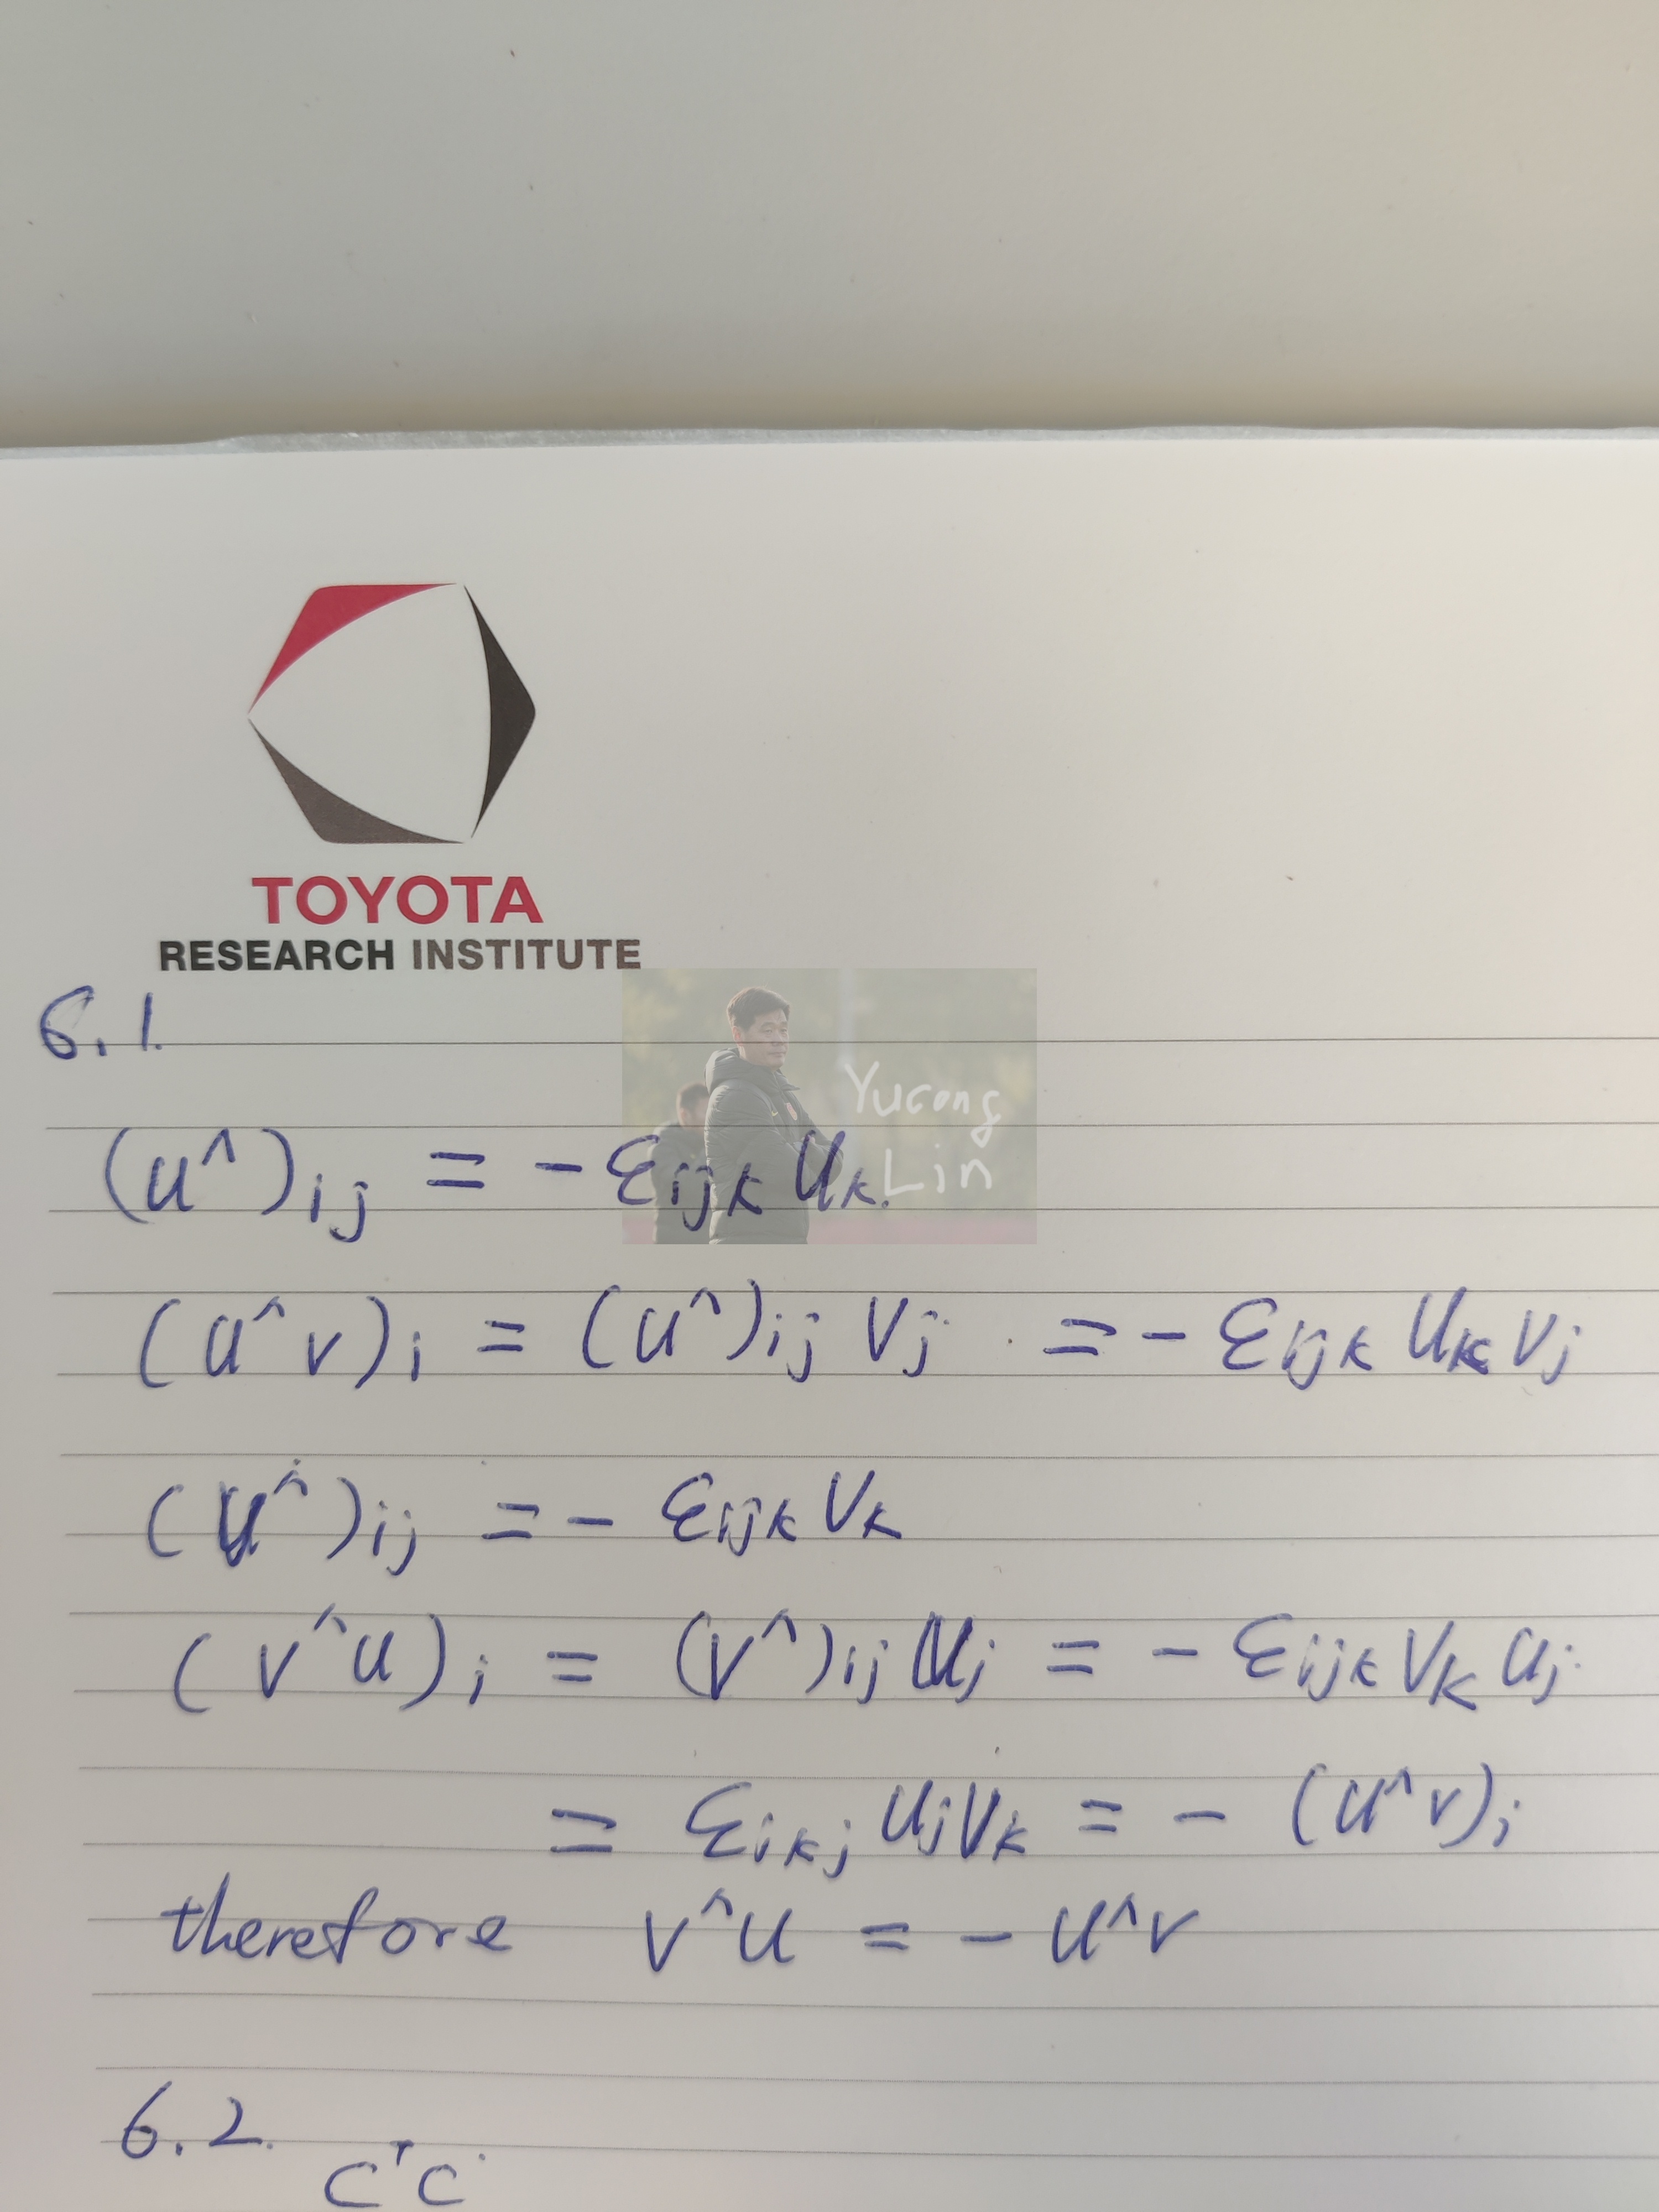 TOYOTA
RESEARCH INSTITUTE
6.1.
Yucong
Lin
(u^)ij = -εijk uk.
(u^v)i = (u^)ij vj = - εijk uk vj
(v^)ij = - εijk vk
(v^u)i = (v^)ij uj = - εijk vk uj.
= εikj uj vk = - (u^v)i
therefore v^u = - u^v
6.2.
CᵀC